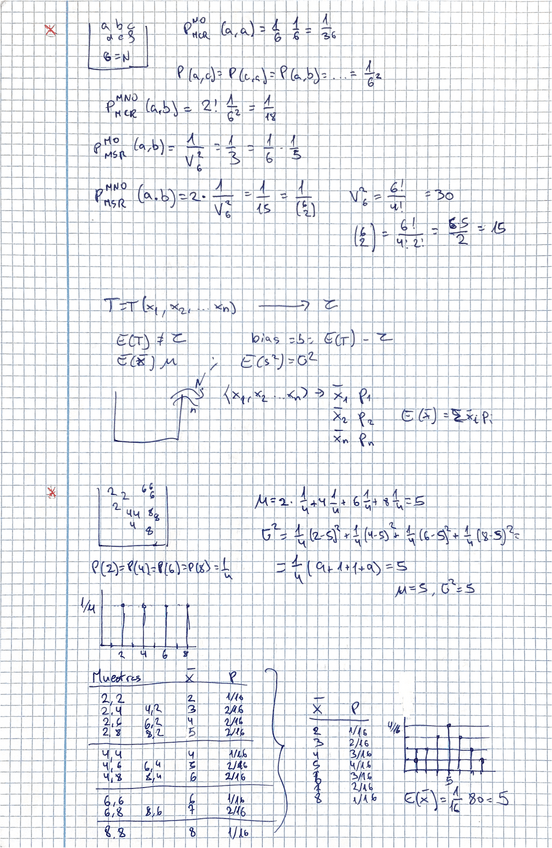 a b c
d e f
6 = N
P^{MO}_{MCR} (a,a) = 1/6 · 1/6 = 1/36
P(a,c) = P(c,a) = P(a,b) = ... = 1/6²
P^{MNO}_{MCR} (a,b) = 2! 1/6² = 1/18
P^{MO}_{MSR} (a,b) = 1/V²₆ = 1/3 = 1/6 · 1/5
P^{MNO}_{MSR} (a,b) = 2 · 1/V²₆ = 1/15 = 1/(6 2)
V²₆ = 6!/4! = 30
(6 2) = 6!/4! 2! = 6·5/2 = 15
T = T(x₁, x₂, ... xₙ) → τ
E(T) ≠ τ
bias = b = E(T) − τ
E(x̄) μ ; E(s²) = σ²
N
n
(x₁, x₂ ... xₙ) → x̄₁ p₁
x̄₂ p₂
x̄ₙ pₙ
E(x̄) = Σ x̄ᵢ pᵢ
2 2 6 6
6
2 4 4 8 8
4 8
μ = 2 · 1/4 + 4 1/4 + 6 1/4 + 8 1/4 = 5
σ² = 1/4 (2-5)² + 1/4 (4-5)² + 1/4 (6-5)² + 1/4 (8-5)² =
= 1/4 (9+1+1+9) = 5
μ = 5, σ² = 5
P(2) = P(4) = P(6) = P(8) = 1/4
1/4
2 4 6 8
Muestras x̄ P
2,2 2 1/16
2,4 4,2 3 2/16
2,6 6,2 4 2/16
2,8 8,2 5 2/16
4,4 4 1/16
4,6 6,4 5 2/16
4,8 8,4 6 2/16
6,6 6 1/16
6,8 8,6 7 2/16
8,8 8 1/16
x̄ P
2 1/16
3 2/16
4 3/16
5 4/16
6 3/16
7 2/16
8 1/16
4/16
5
E(x̄) = 1/16 80 = 5